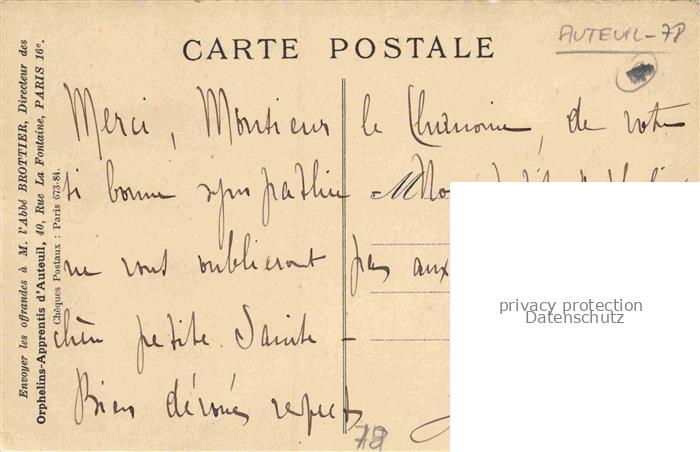 CARTE POSTALE
AUTEUIL-78
Envoyer les offrandes à M. l'Abbé BROTTIER, Directeur des
Orphelins-Apprentis d'Auteuil, 40, Rue La Fontaine, PARIS 16e.
Chèques Postaux : Paris 673-84.
Merci, Monsieur le Chanoine, de votre
si bonne sympathie Nos
ne vous oublieront pas aux
chère petite Sainte -
Bien dévoués respects
78
privacy protection
Datenschutz